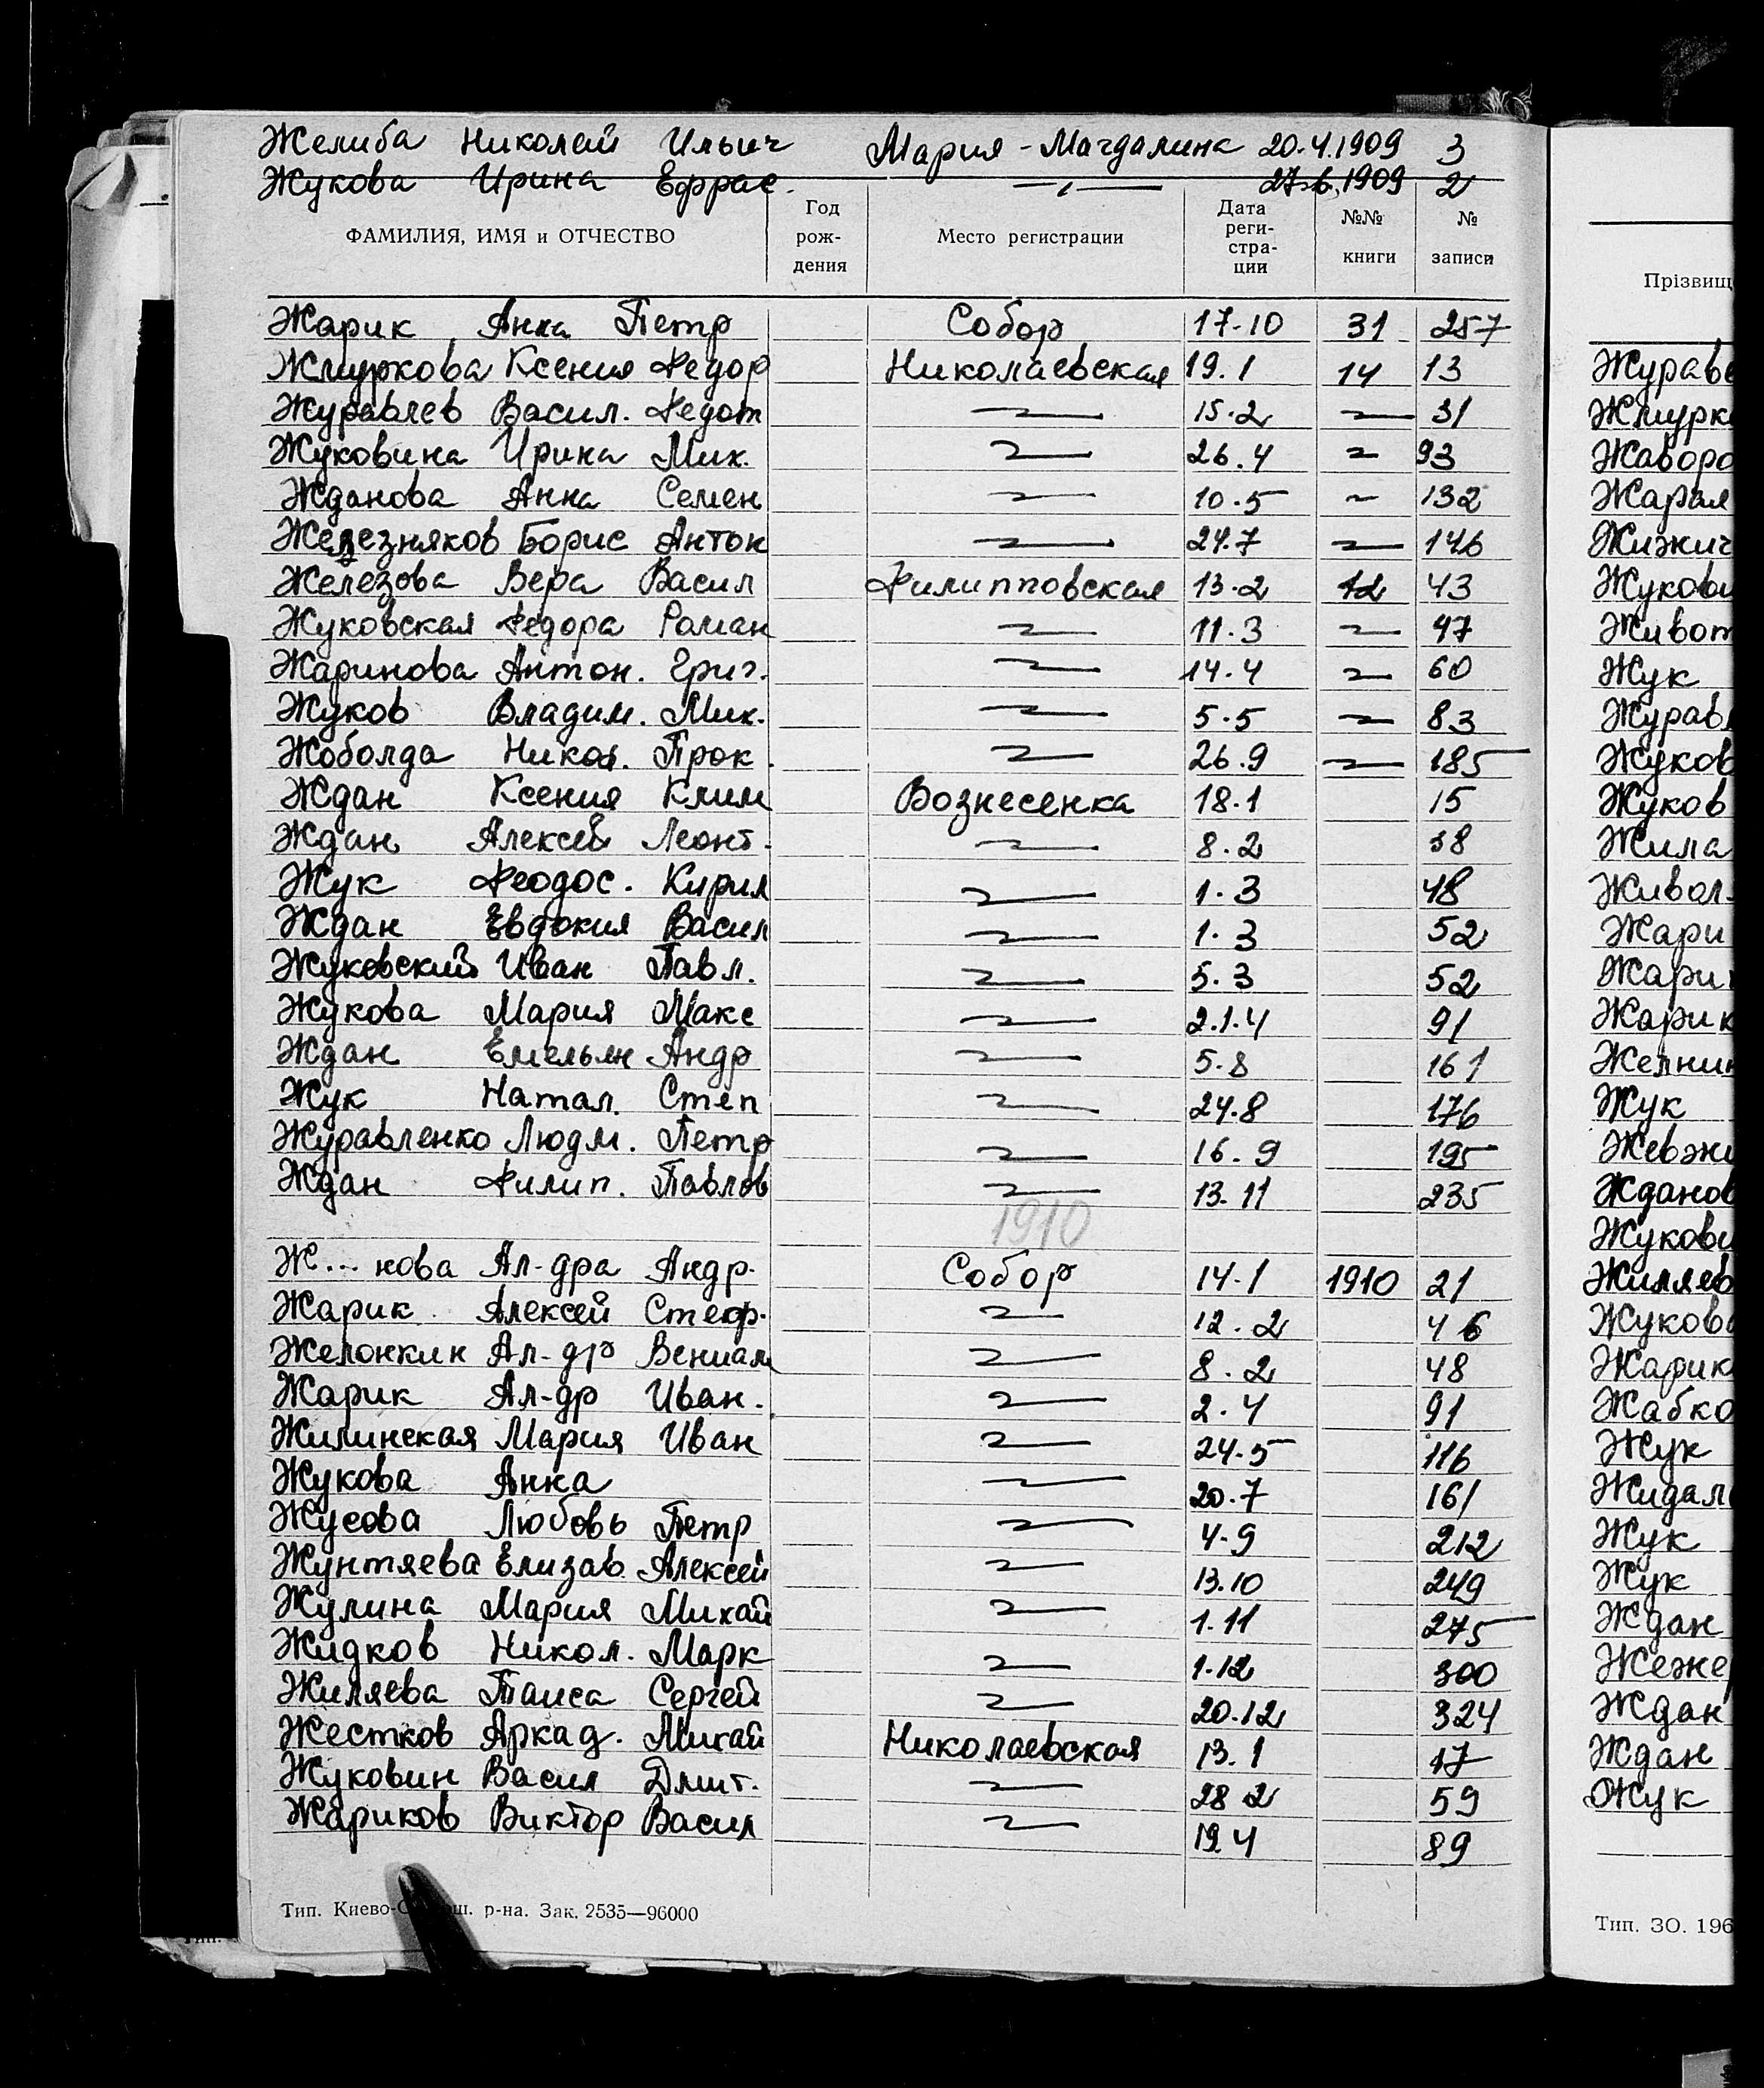 Желиба Николай Ильич Мария-Магдалина 20.4.1909 3
Жукова Ирина Ефрас. —〃— 27.6.1909 2
ФАМИЛИЯ, ИМЯ и ОТЧЕСТВО Год рож-дения Место регистрации Дата реги-стра-ции №№ книги № записи
Жарик Анна Петр Собор 17.10 31 257
Жмуркова Ксения Федор Николаевская 19.1 14 13
Журавлев Васил. Федот —〃— 15.2 —〃— 31
Жуковина Ирина Мих. —〃— 26.4 —〃— 93
Жданова Анна Семен —〃— 10.5 —〃— 132
Железняков Борис Антон —〃— 24.7 —〃— 146
Железова Вера Васил Филипповская 13.2 12 43
Жуковская Федора Роман —〃— 11.3 —〃— 47
Жаринова Антон. Григ. —〃— 14.4 —〃— 60
Жуков Владим. Мих. —〃— 5.5 —〃— 83
Жоболда Никол. Прок. —〃— 26.9 —〃— 185
Ждан Ксения Клим Вознесенка 18.1 15
Ждан Алексей Леонт. —〃— 8.2 38
Жук Феодос. Кирил —〃— 1.3 48
Ждан Евдокия Васил —〃— 1.3 52
Жуковский Иван Павл. —〃— 5.3 52
Жукова Мария Макс —〃— 2.1.4 91
Ждан Емельян Андр —〃— 5.8 161
Жук Натал. Степ —〃— 24.8 176
Журавленко Людм. Петр —〃— 16.9 195
Ждан Филип. Павлов —〃— 13.11 235
1910
Ж...нова Ал-дра Андр. Собор 14.1 1910 21
Жарик Алексей Стеф. —〃— 12.2 46
Желонкин Ал-др Вениам —〃— 8.2 48
Жарик Ал-др Иван. —〃— 2.4 91
Жилинская Мария Иван —〃— 24.5 116
Жукова Анна —〃— 20.7 161
Жусова Любовь Петр —〃— 4.9 212
Жунтяева Елизав. Алексей —〃— 13.10 249
Жулина Мария Михай —〃— 1.11 275
Жидков Никол. Марк —〃— 1.12 300
Жиляева Таиса Сергей —〃— 20.12 324
Жестков Аркад. Михай Николаевская 13.1 17
Жуковин Васил Дмит. —〃— 28 2 59
Жариков Виктор Васил —〃— 19.4 89
Тип. Киево-С ош. р-на. Зак. 2535—96000
Прізвищ
Журавл
Жмурк
Жаворо
Жарая
Жижич
Жукови
Живот
Жук
Журавл
Жуков
Жуков
Жила
Живол
Жари
Жари
Жарик
Желни
Жук
Жевжи
Жданов
Жукови
Жиляев
Жукова
Жарик
Жабко
Жук
Жидал
Жук
Жук
Ждан
Жежер
Ждан
Ждан
Жук
Тип. ЗО. 196